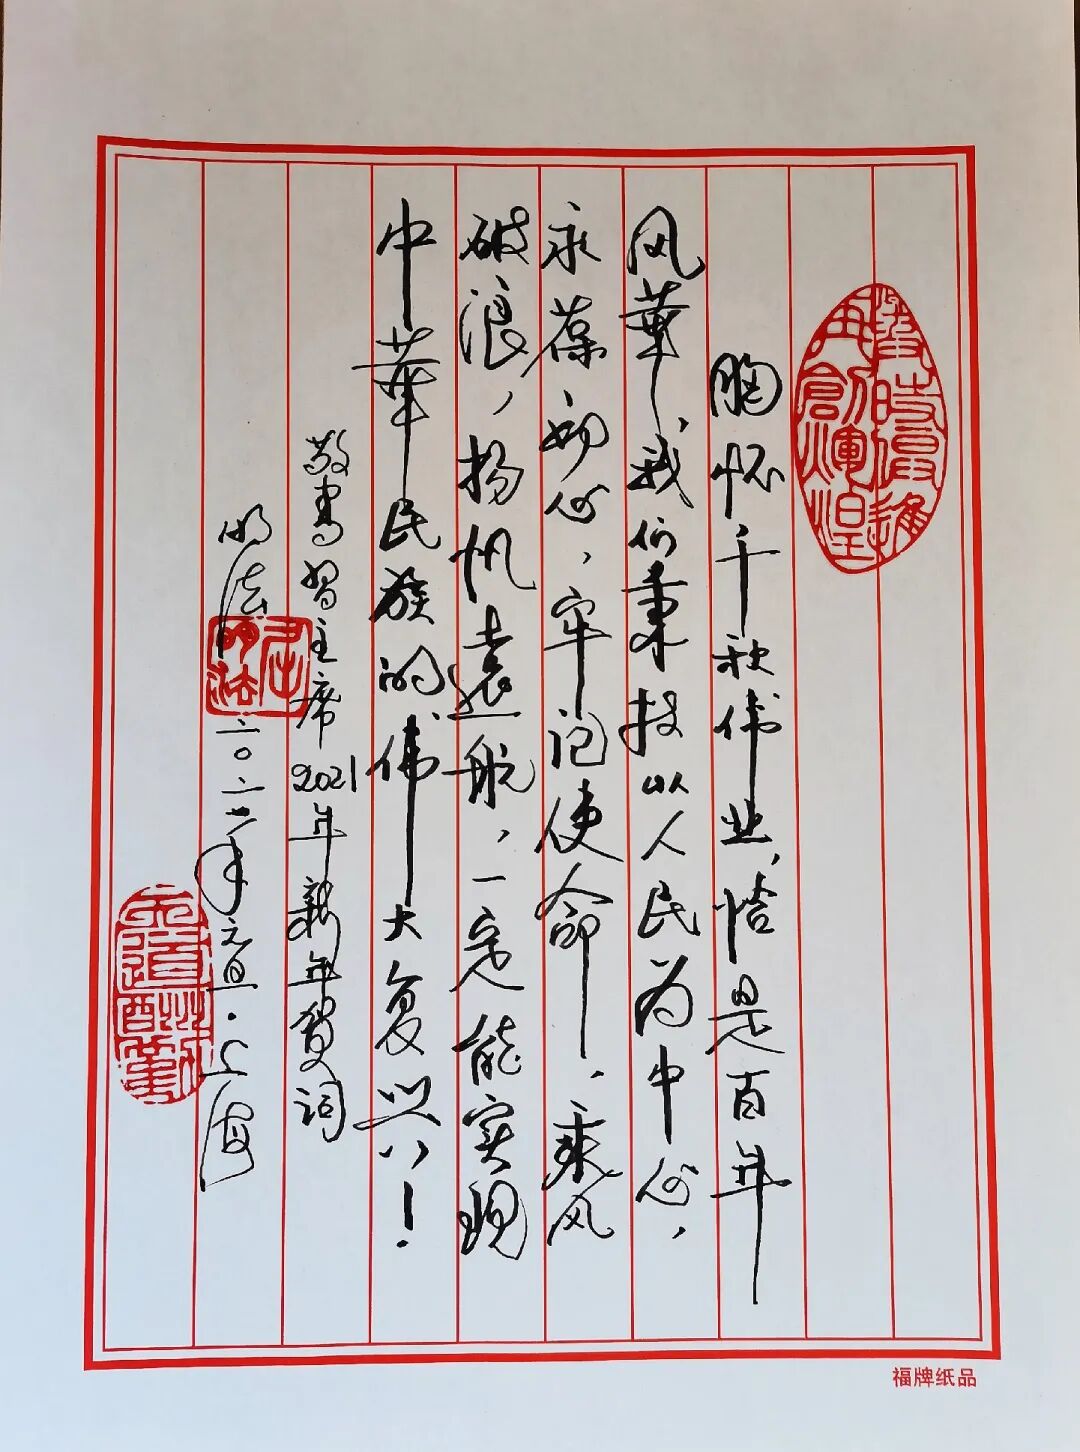 胸怀千秋伟业，恰是百年
风华，我们秉持以人民为中心，
永葆初心，牢记使命，乘风
破浪，扬帆远航，一定能实现
中華民族的伟大复兴！
敬書習主席2021年新年贺词
明法
二〇二一年元旦·上海
再創輝煌
天道酬勤
明法
福牌纸品